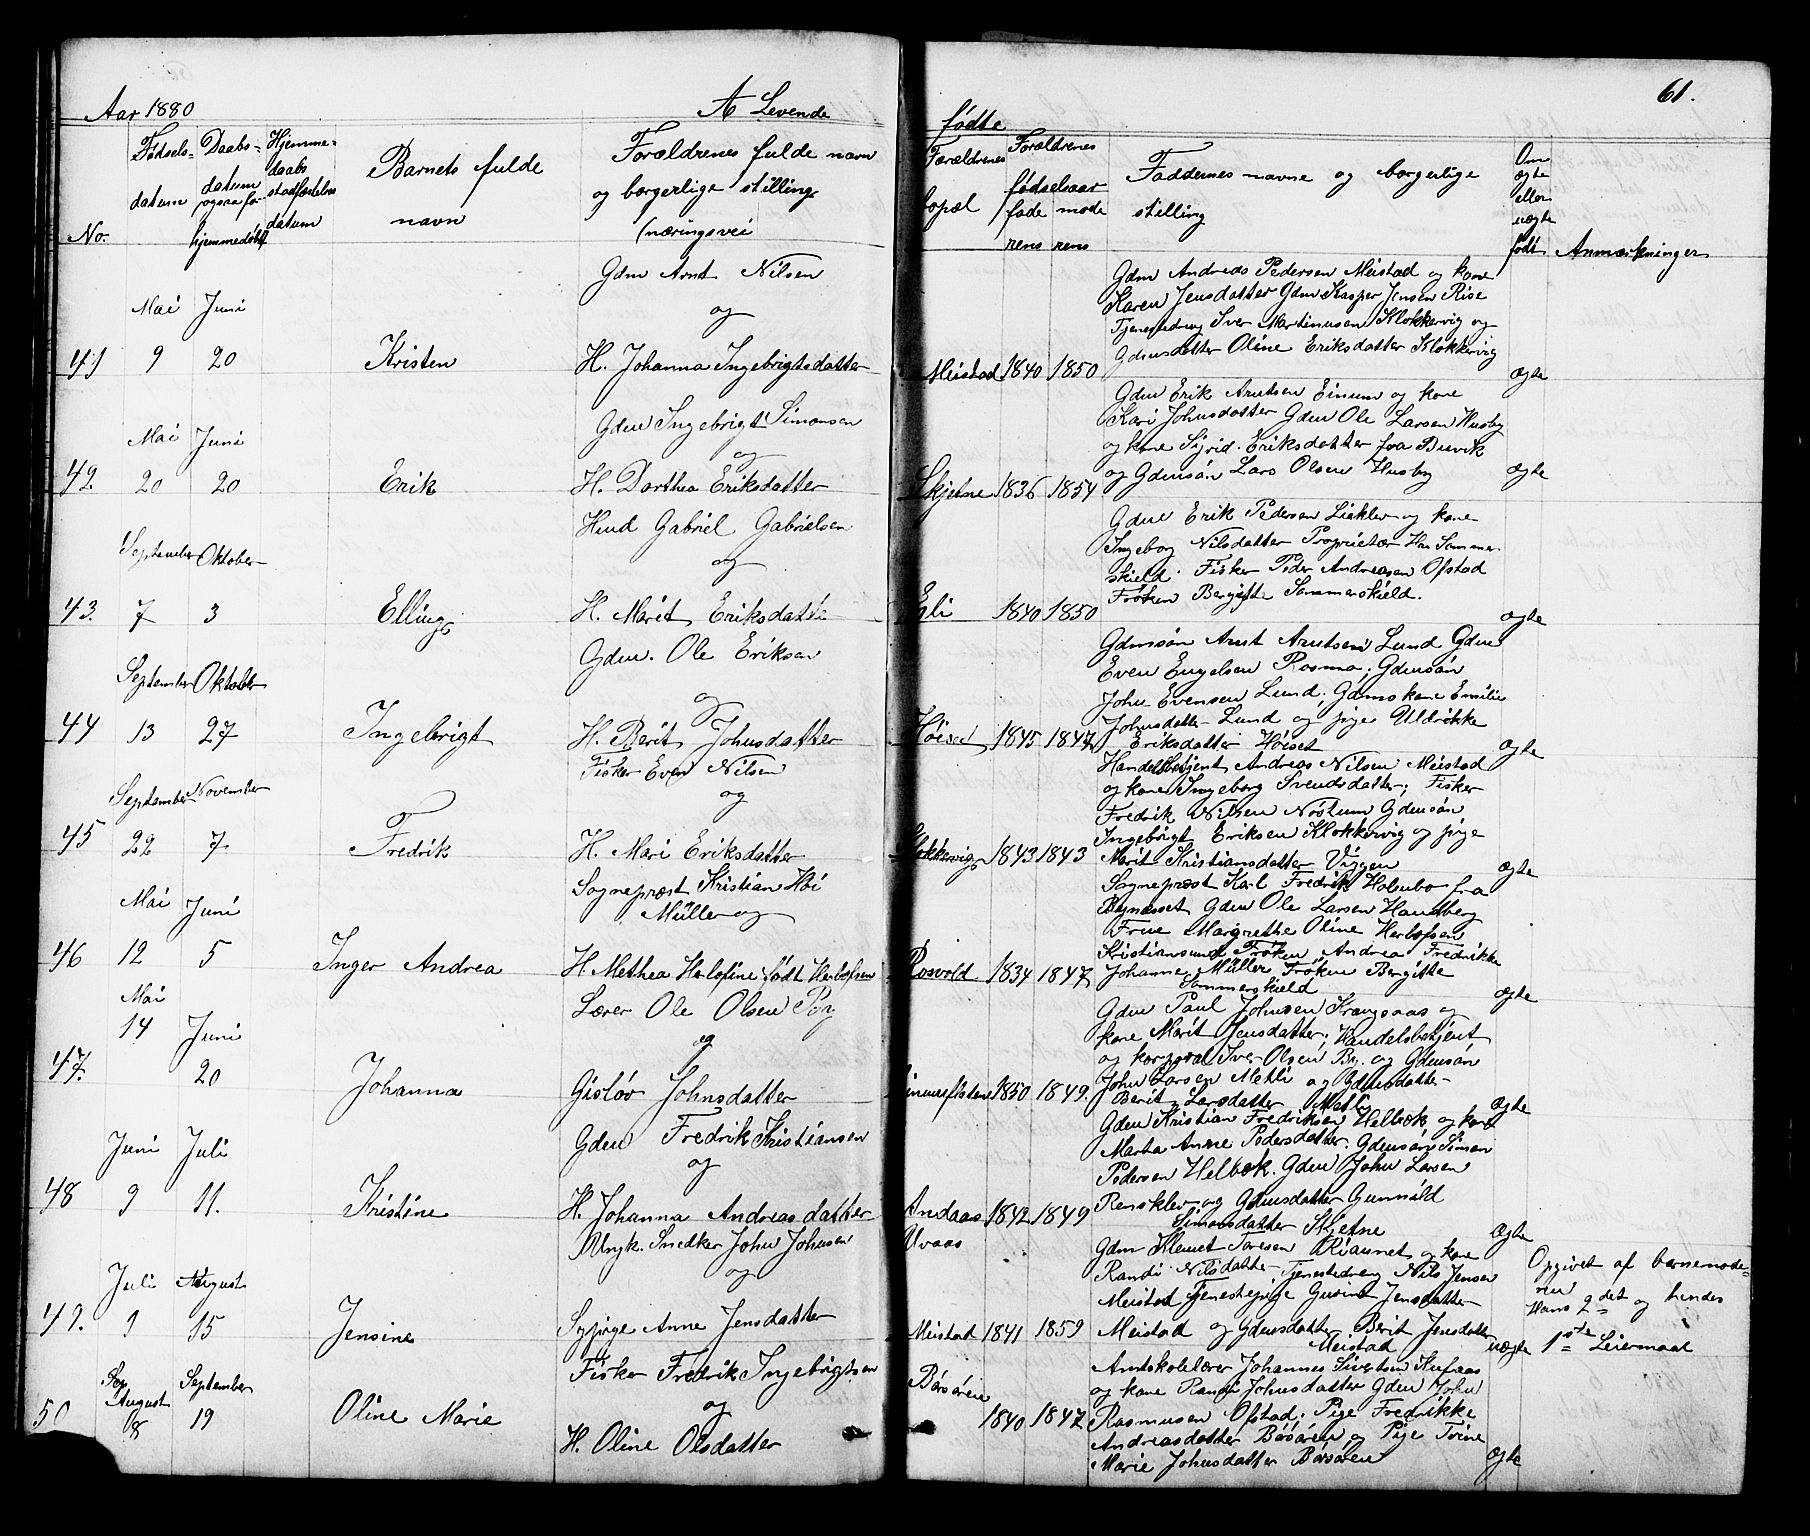 Aar 1880
A Levende
fødte
61.
No.
Fødsels-
datum
Daabs-
datum
ogsaa for
hjemmedøbt
Hjemme-
daabs
stadfæstelses
datum
Barnets fulde
navn
Forældrenes fulde navn
og borgerlige stilling
(næringsvei
Forældrenes
bopæl
Forældrenes
fødselsaar
fade mode
rens rens
Faddernes navne og borgerlige
stilling
Om
ægte
eller
uægte
født
Anmærkninger
41
Mai
9
Juni
20
Kristen
Gdm Arnt Nilsen
og
H. Johanna Ingebrigtsdatter
Meistad 1840 1850
Gdm Andreas Pedersen Meistad og kone
Karen Jensdatter Gdm Kasper Jensen Rise
Tjenestedreng Iver Martinusen Klokkervig og
Gdmsdatter Oline Eriksdatter Klokkervig
ægte
42.
Mai
20
Juni
20
Erik
Gdm Ingebrigt Simonsen
og
H. Dorthea Eriksdatter
Skjetne 1836 1854
Gdm Erik Arntsen Einum og kone
Kari Johnsdatter Gdm Ole Larsen Husby
og kone Sigrid Eriksdatter fra Buvik
og Gdmsøn Lars Olsen Husby
ægte
43.
September
7
Oktober
3
Elling
Hmd Gabriel Gabrielsen
og
H. Marit Eriksdatte
Eli 1840 1850
Gdm Erik Pedersen Lieklev og kone
Ingebog Nilsdatter Proprietær Hm Sommer
skield. Fisker Peder Andreasen Ofstad
Frøken Bergitte Sommerskield.
ægte
44
September
13
Oktober
27
Ingebrigt
Gdm. Ole Eriksen
og
H. Berit Johnsdatter
Høiset 1845 1847
Gdmsøn Arnt Arntsen Lund Gdm
Even Engelsen Rosmo; Gdmsøn
John Evensen Lund; Gdmskone Emilie
Johnsdatter Lund og pige Uldrikke
Eriksdatter Høiset
ægte
45
September
22
November
7
Fredrik
Fisker Even Nilsen
og
H. Mari Eriksdatter
Klokkervig 1843 1843
Handelsbetjent Andreas Nilsen Meistad
og kone Ingeborg Svendsdatter; Fisker
Fredrik Nilsen Nøstum Gdmsøn
Ingebrigt Eriksen Klokkervig og pige
Marit Kristiansdatter Viggen
ægte
46
Mai
12
Juni
5
Inger Andrea
Sognepræst Kristian Høi
Müller og
H. Methea Helofine født Herlofsen
Rosvold 1834 1847
Sognepræst Karl Fredrik Holmbo fra
Bynæsset Gdm Ole Larsen Hamberg
Frue Margrethe Oline Herlofsen
Kristiansund Frøken Andrea Fredrikke
Johanne Müller Frøken Bergitte
Sommerskield
ægte
47.
Mai
14
Juni
20
Johanna
Lærer Ole Olsen By
og
Gisløv Johnsdatter
1850 1849.
Gdm Paul Johnsen Krangsaas og
kone Marit Jensdatter; Handelsbetjent
og korporal Iver Olsen By. og Gdmsøn
John Larsen Metli og Gdmsdatter
Berit Larsdatter Metli
ægte
48
Juni
9
Juli
11.
Kristine
Gdm Fredrik Kristiansen
og
H. Johanna Andreasdatter
Andaas 1842 1849
Gdm Kristian Fredriksen Helbæk og kone
Marta Anne Pedersdatter Gdmsøn Simon
Pedersen Helbæk. Gdm John Larsen
Rensklev og Gdmsdatter Gunnild
Simonsdatter Skjetne
ægte
49.
Juli
9
August
15
Jensine
Ungk. Snedker John Johnsen
og
Sypige Anne Jensdatter
Uvaas
Meistad 1841 1859
Gdm Klemet Toresen Riaunet og kone
Randi Nilsdatter, Tjenestedreng Nils Jensen
Meistad Tjenestepige Gurine Jensdatter
Meistad og Gdmsdatter Berit Jensdatter
Meistad
uægte
Opgivet af barnemode-
ren
Hans 2det og hendes
1ste Leiermaal
50
Sep
August
8
September
19
Oline Marie
Fisker Fredrik Ingebrigtsen
og
H. Oline Olsdatter
Børsøren
1840 1847
Amtskolelærer Johannes Sivertsen Kufaas
og kone Randi Johnsdatter Gdm John
Rasmusen Ofstad. Pige Fredrikke
Andreasdatter Børsøren og Pige Trine
Marie Johnsdatter Børsøren
ægte